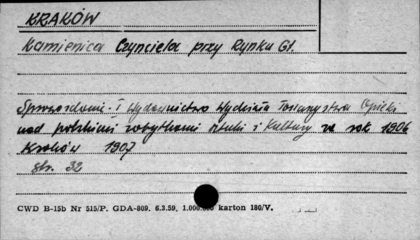 KRAKÓW
Kamienica Czynciela przy Rynku Gł.
Sprawozdanie i Wydawnictwo Wydziału Towarzystwa Opieki
nad polskimi zabytkami sztuki i Kultury za rok 1906
Kraków 1907
str. 32
CWD B-15b Nr 515/P. GDA-809. 6.3.59. 1.000.000 karton 180/V.